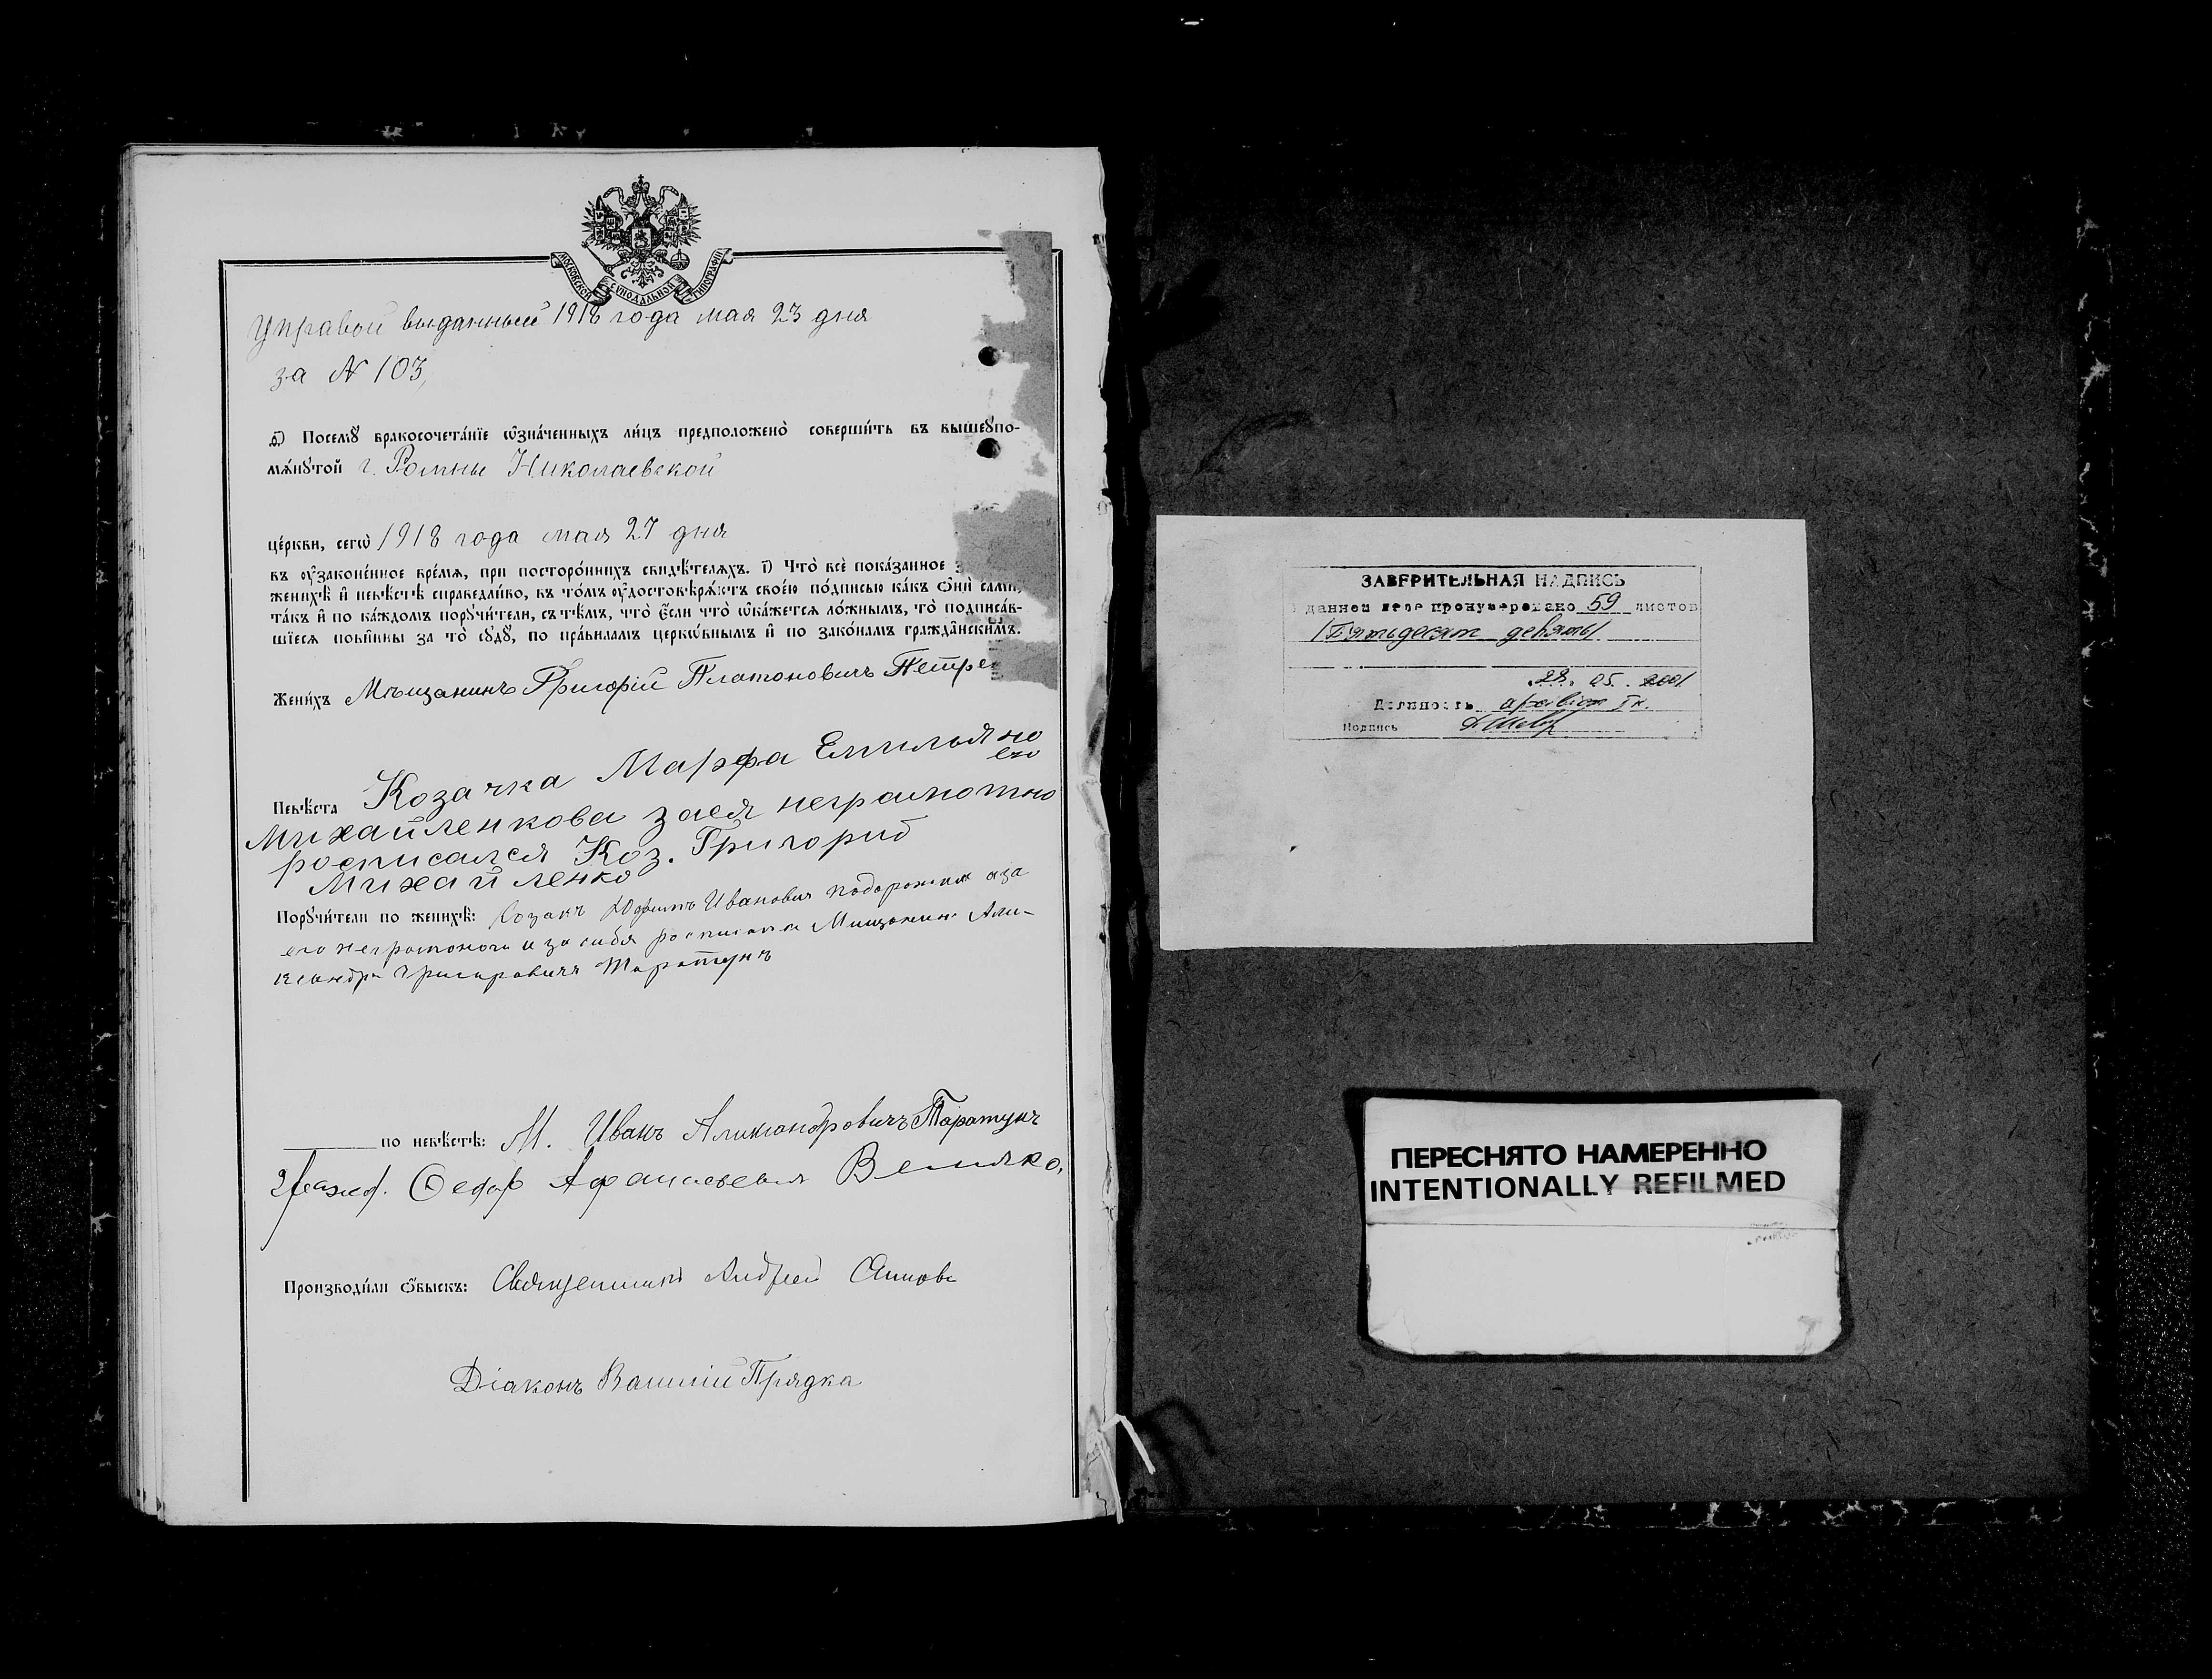 МОСКОВСКОЙ СѴНОДАЛЬНОЙ ТИПОГРАФІИ
Управой выданный 1918 года мая 23 дня
за № 103,
д҃) Посемꙋ̀ бракосочета́нїе ѡ҆зна́ченныхъ ли́цъ предположено̀ соверши́ть въ вышеꙋпо-
мѧ́нꙋтой г. Ромны Николаевской
це́ркви, сегѡ̀ 1918 года мая 27 дня
въ ᲂу҆законе́нное вре́мѧ, при посторо́ннихъ свидѣ́телѧхъ. і҃) Что̀ всѐ пока́занное
женихѣ̀ и҆ невѣ́стѣ справедли́во, въ то́мъ ᲂу҆достовѣрѧ́ютъ свое́ю по́дписью ка́къ ѻ҆нѝ са́ми,
та́къ и҆ по ка́ждомъ порꙋчи́тели, съ тѣ́мъ, что̀ є҆́сли что̀ ѡ҆ка́жетсѧ ло́жнымъ, то̀ подписа́в-
шїесѧ пови́нны за то̀ сꙋдꙋ̀, по пра́виламъ церко́внымъ и҆ по зако́намъ гражда́нскимъ.
Жени́хъ Мѣщанинъ Григорій Платоновичъ Петре
Невѣ́ста Козачка Марфа Емильяно
ею
Михайленкова заея неграмотно
росписался Коз. Григорий
Михайленко
Порꙋчи́тели по женихѣ̀: Козакъ Юфимъ Ивановичъ подорожній аза
его неграмоного и за себя росписался Мищанин Али-
ксандръ Григоровичъ Таратунъ
по невѣ́стѣ: М. Иванъ Александровичъ Таратунъ
Федор Афанасьевич Велично,
Производи́ли ѻ҆́быскъ: Священникъ Андрей
Діаконъ Василій Прядка
ЗАВЕРИТЕЛЬНАЯ НАДПИСЬ
данном деле пронумеровано 59 листов
/Пятьдесят девять/
28. 05. 2001
Должность архівіст Ік.
Подпись
ПЕРЕСНЯТО НАМЕРЕННО
INTENTIONALLY REFILMED